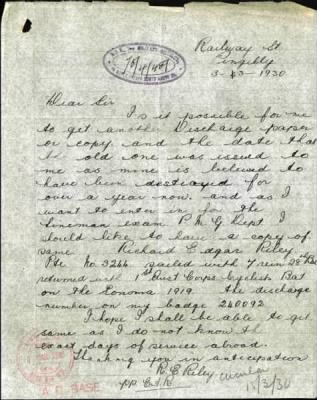 Railway St
Pingelly
3-3-1930
Dear Sir
Is it possible for me
to get another Discharge paper
or copy and the date that
the old one was issued to
me as mine is believed to
have been destroyed for
over a year now. and as I
want to enter in for the
Lineman exam P.M.G Dept I
should like to have a copy of
same Richard Edgar Riley
Pte No. 3244 sailed with 7 rein 28th Bat
returned with 1st Aust Corps Cyclist Bat
on the Konoma 1919. the discharge
number on my badge 240092
I hope I shall be able to get
same as I do not know the
exact days of service abroad.
Thanking you in anticipation
R E Riley
A.C. BASE